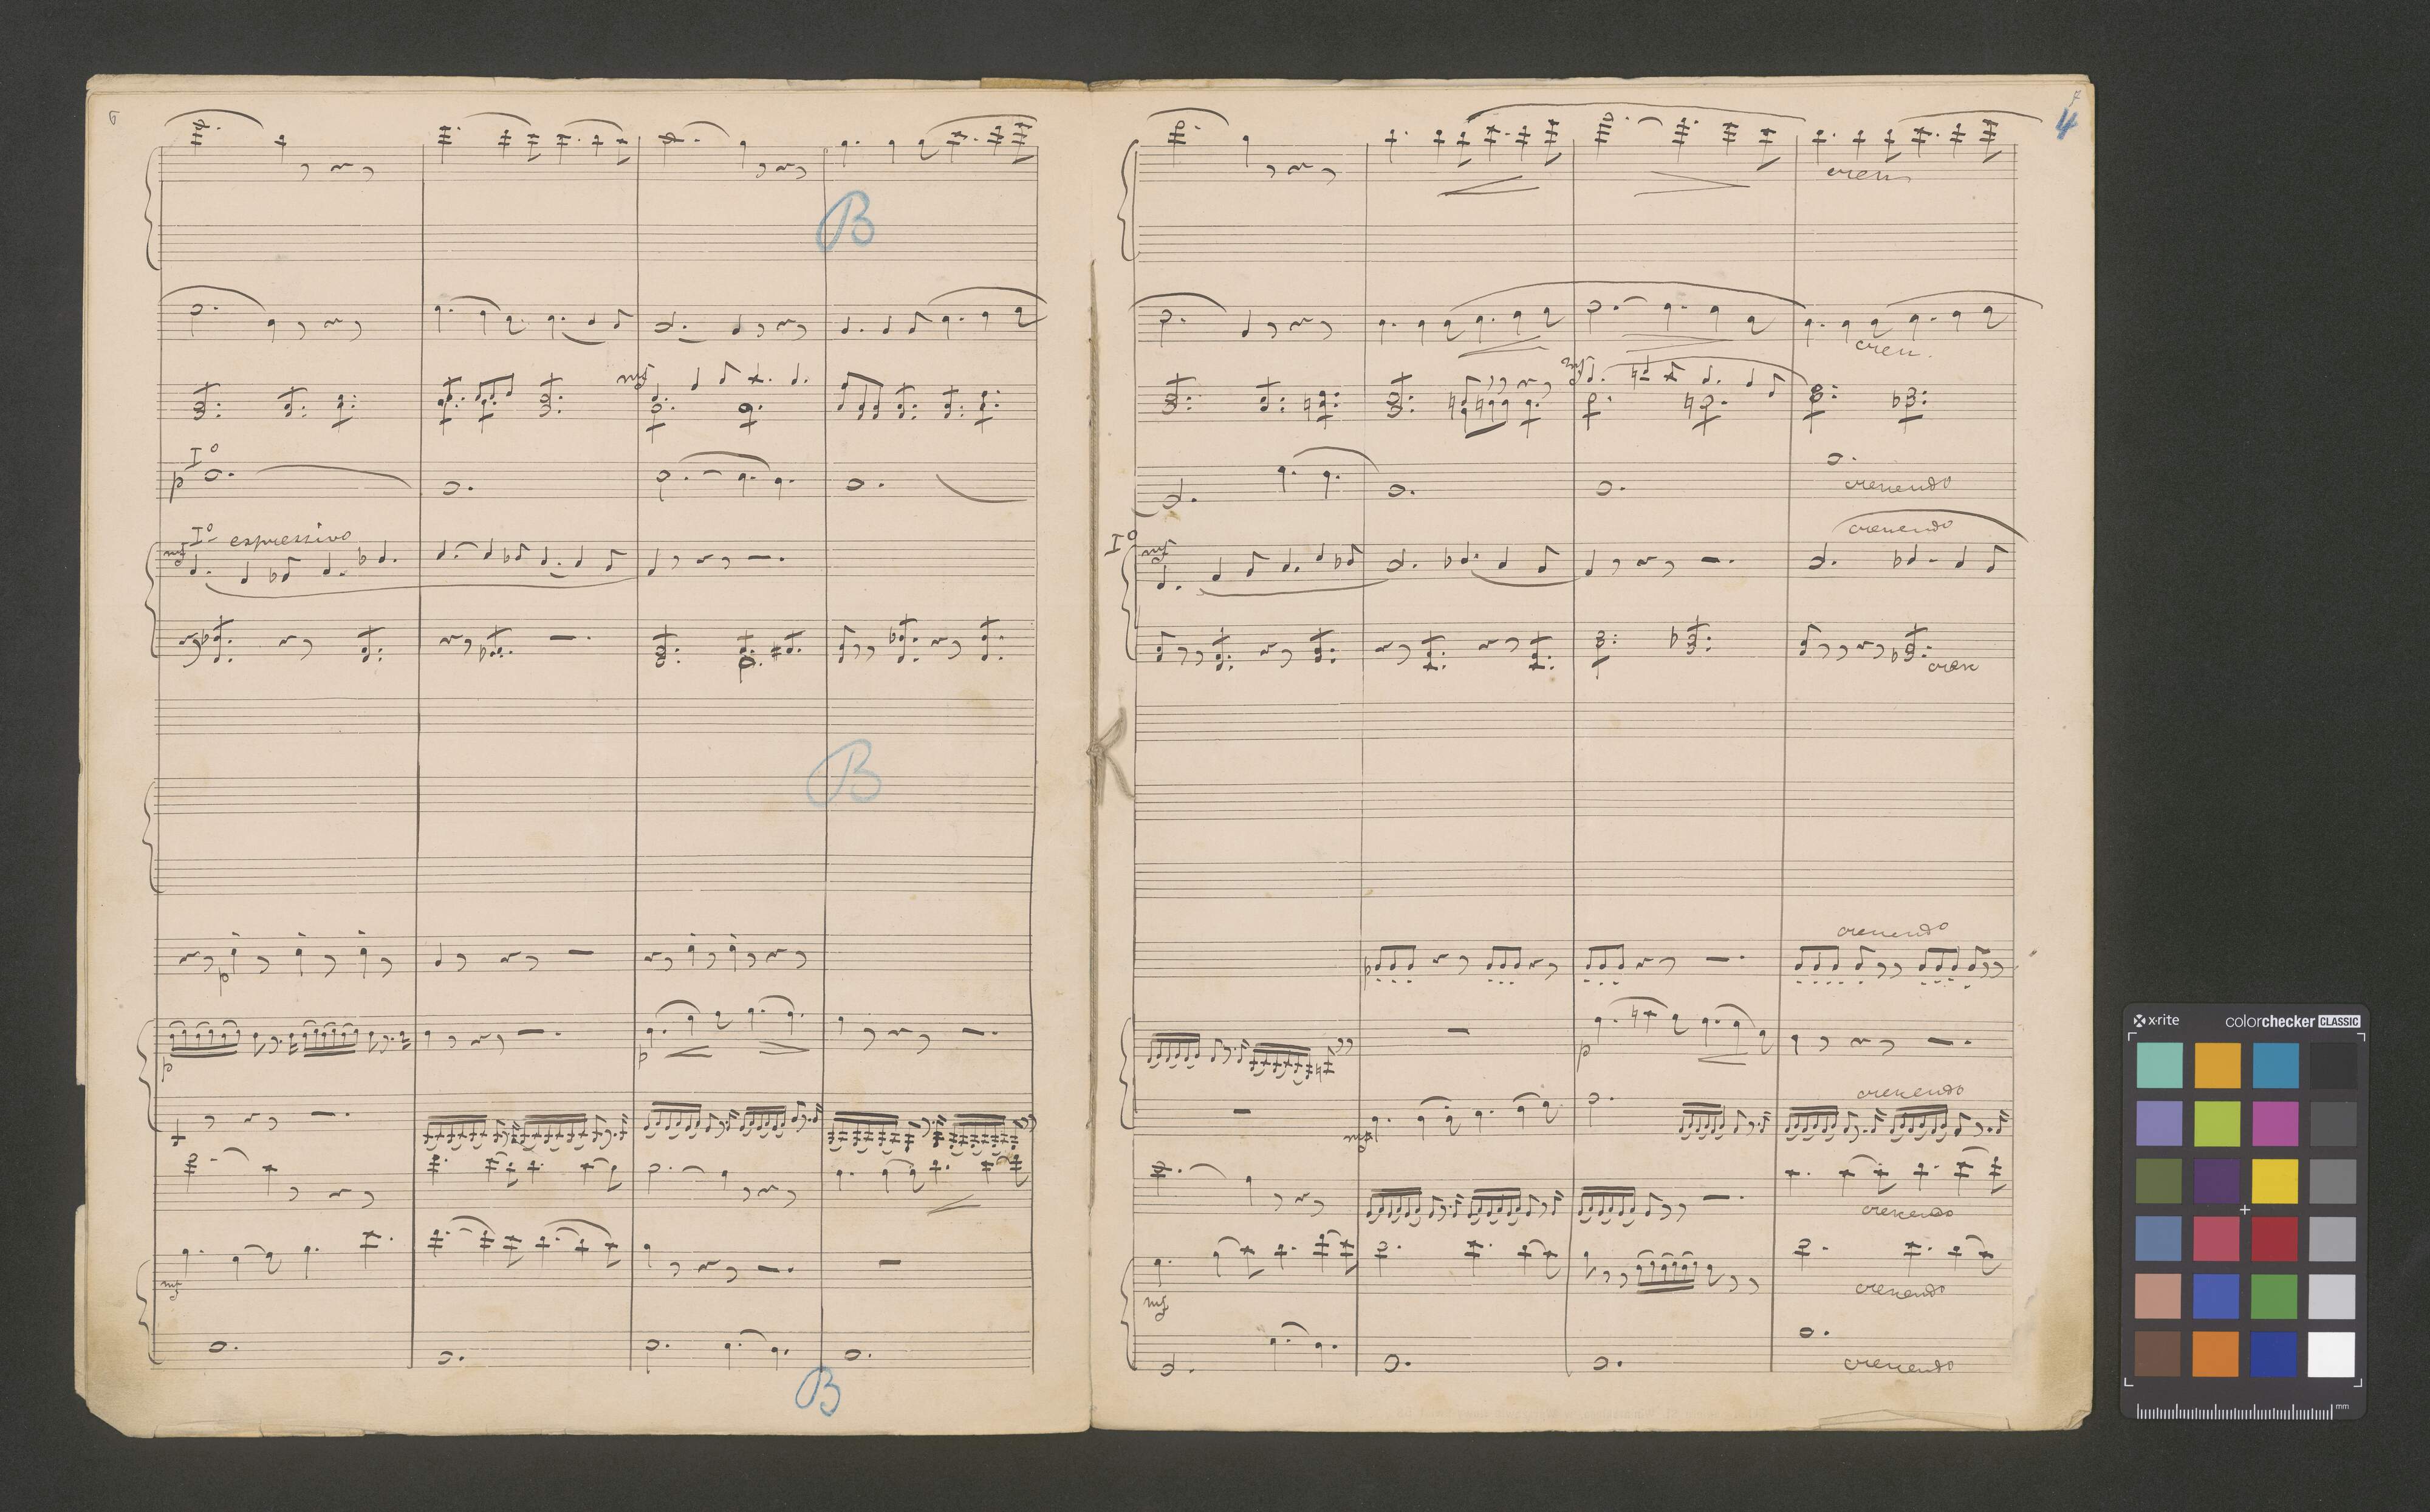 6
B
mf
I°
p
I° espressivo
mf
B
p
p
p
mf
B
7
4
cresc
cresc.
mf
crescendo
I°
mf
crescendo
cresc
crescendo
p
p
crescendo
mf
crescendo
crescendo
mf
crescendo
x-rite
colorchecker CLASSIC
mm